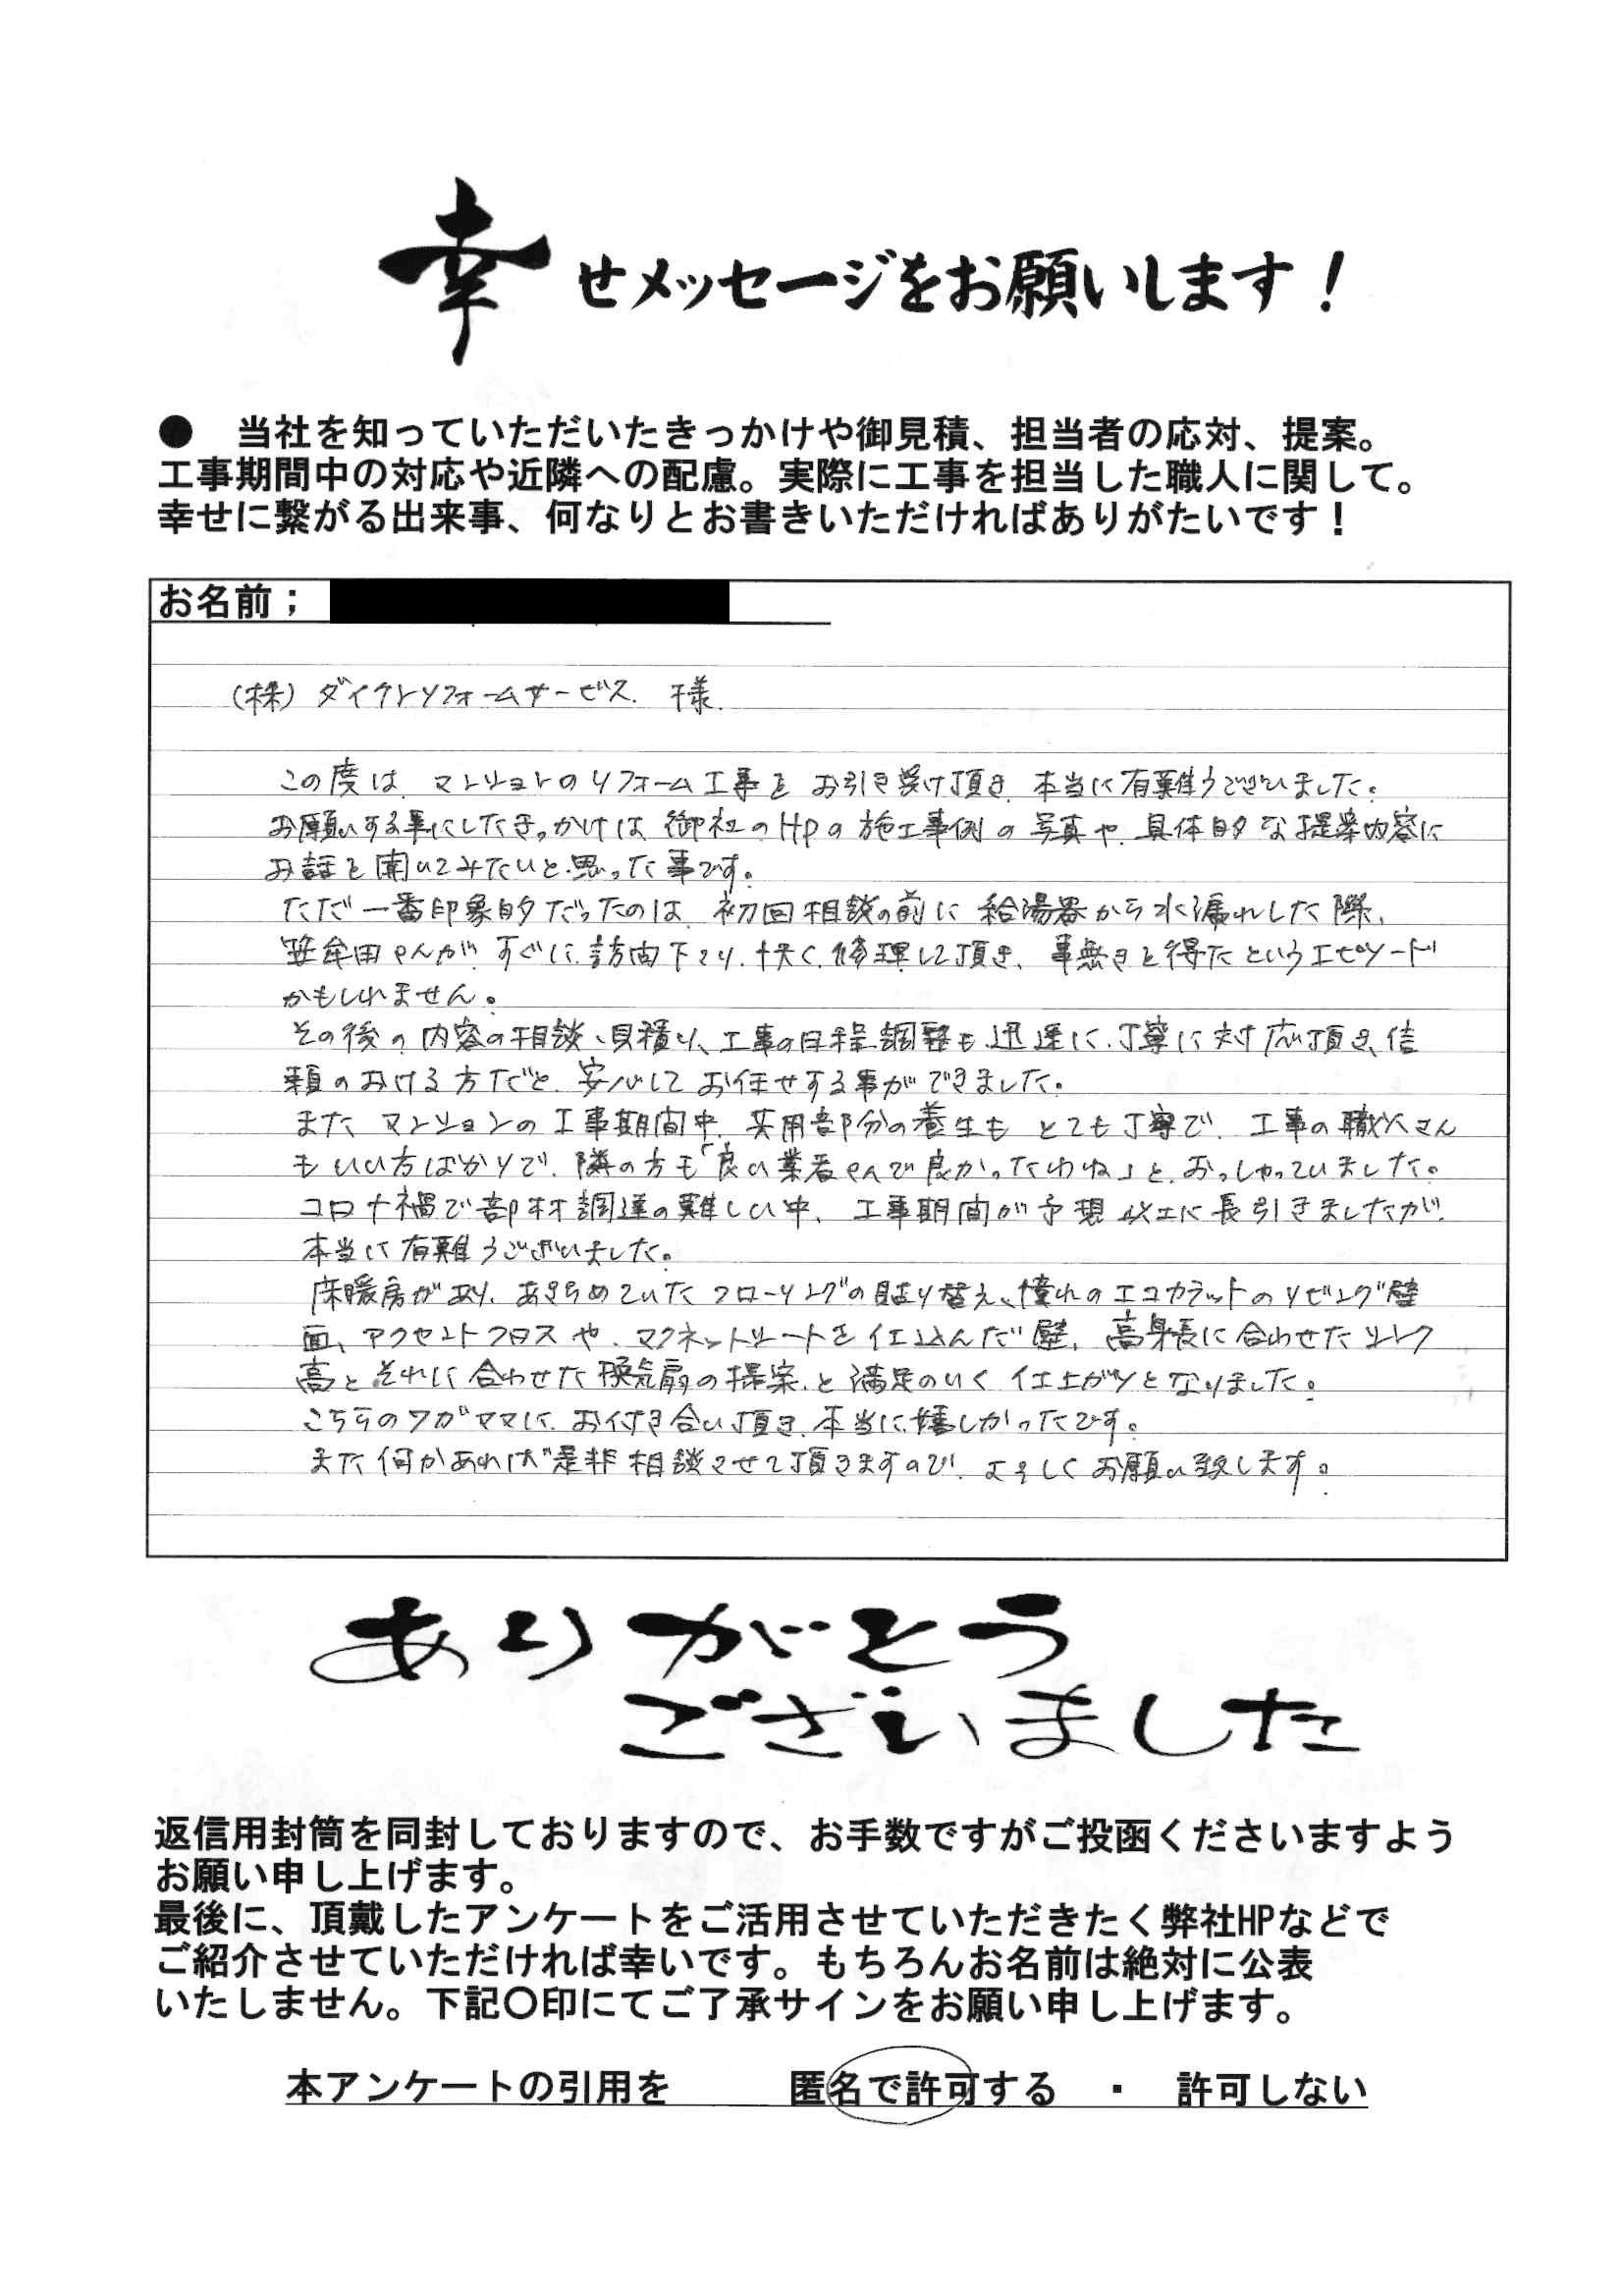 幸せメッセージをお願いします！
● 当社を知っていただいたきっかけや御見積、担当者の応対、提案。
工事期間中の対応や近隣への配慮。実際に工事を担当した職人に関して。
幸せに繋がる出来事、何なりとお書きいただければありがたいです！
お名前；
（株）ダイクトリフォームサービス 様
この度は、マンションのリフォーム工事を お引き受け頂き、本当に有難うございました。
お願いする事にしたきっかけは 御社のHPの施工事例の写真や、具体的な提案内容に
お話を聞いてみたいと思った事です。
ただ一番印象的だったのは、初回相談の前に 給湯器から水漏れした際、
笹牟田さんが、すぐに訪問下さり、快く修理して頂き、事無きを得たというエピソード
かもしれません。
その後の内容の相談、見積り、工事の日程調整も迅速に、丁寧に対応頂き、信
頼のおける方だと、安心して お任せする事ができました。
また マンションの工事期間中、共用部分の養生も とても丁寧で、工事の職人さん
もいい方ばかりで、隣の方も「良い業者さんで良かったわね」と、おっしゃっていました。
コロナ禍で部材調達の難しい中、工事期間が予想以上に長引きましたが、
本当に有難うございました。
床暖房があり、あきらめていたフローリングの貼り替え、憧れのエコカラットのリビング壁
面、アクセントクロスや、マグネットシートを仕込んだ壁、高身長に合わせたシンク
高とそれに合わせた換気扇の提案、と満足のいく仕上がりとなりました。
こちらのワガママに、お付き合い頂き、本当に嬉しかったです。
また何かあれば是非相談させて頂きますので、よろしくお願い致します。
ありがとう
ございました
返信用封筒を同封しておりますので、お手数ですがご投函くださいますよう
お願い申し上げます。
最後に、頂戴したアンケートをご活用させていただきたく弊社HPなどで
ご紹介させていただければ幸いです。もちろんお名前は絶対に公表
いたしません。下記〇印にてご了承サインをお願い申し上げます。
本アンケートの引用を 匿名で許可する ・ 許可しない